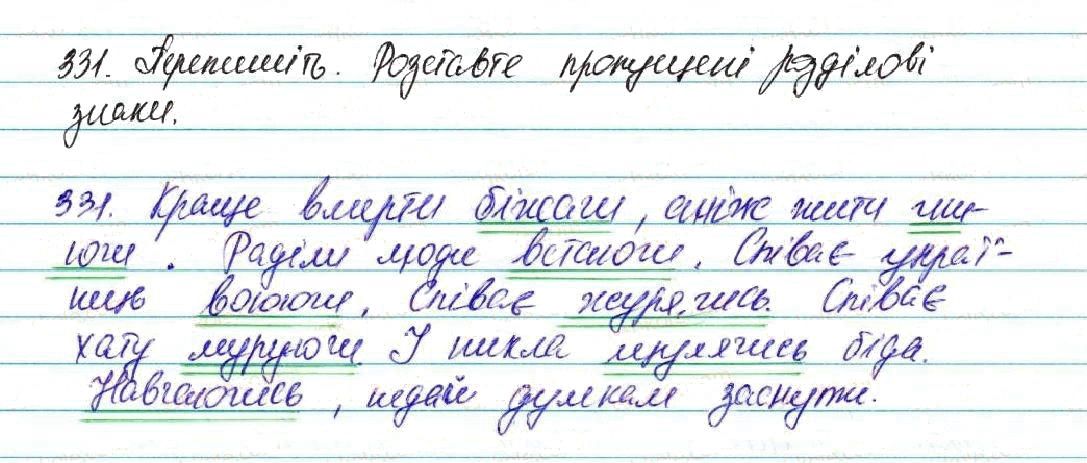 331. Перепишіть. Розставте пропущені розділові
знаки.
331. Краще вмерти біжачи, аніж жити гни-
ючи. Раділи люди встаючи. Співає украї-
нець воюючи, співає журячись. Співає
хату муруючи І никла щулячись біда.
Навчаючись, недай думкам заснути.